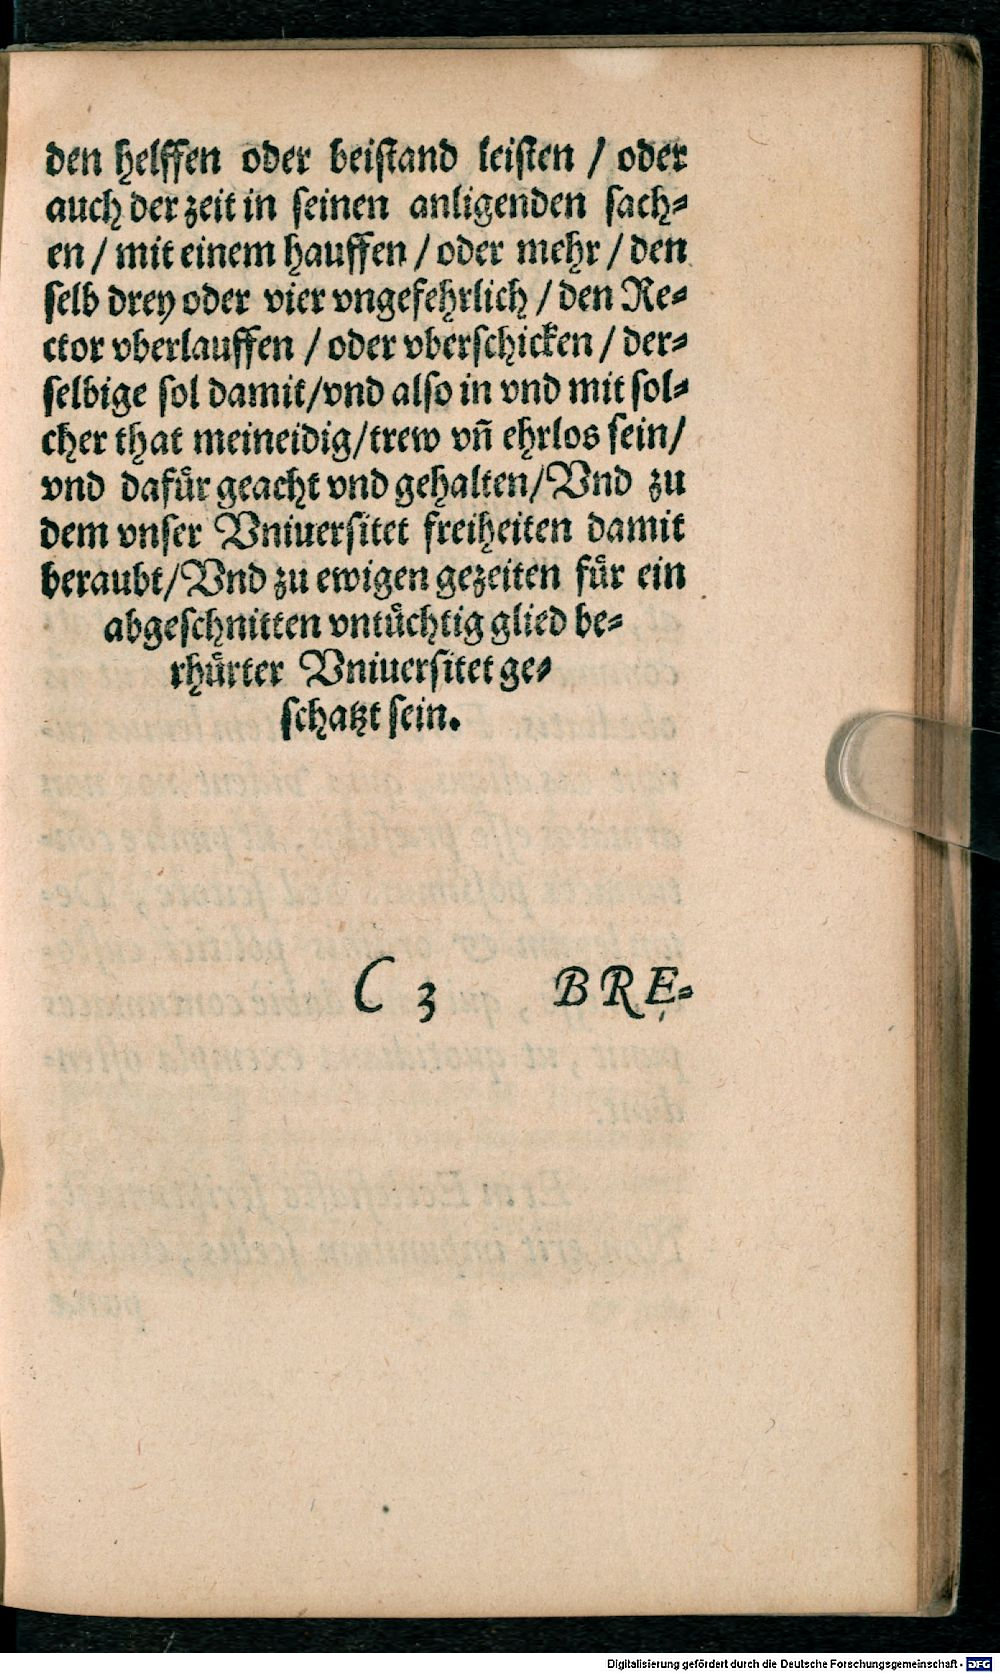 den helffen oder beistand leisten / oder
auch der zeit in seinen anligenden sach-
en / mit einem hauffen / oder mehr / den
selb drey oder vier vngefehrlich / den Re-
ctor vberlauffen / oder vberschicken / der-
selbige sol damit/vnd also in vnd mit sol-
cher that meineidig/trew vñ ehrlos sein/
vnd dafuͤr geacht vnd gehalten/Vnd zu
dem vnser Vniuersitet freiheiten damit
beraubt/Vnd zu ewigen gezeiten fuͤr ein
abgeschnitten vntuͤchtig glied be-
rhuͤrter Vniuersitet ge-
schatzt sein.
C 3 BRE-
Digitalisierung gefördert durch die Deutsche Forschungsgemeinschaft - DFG